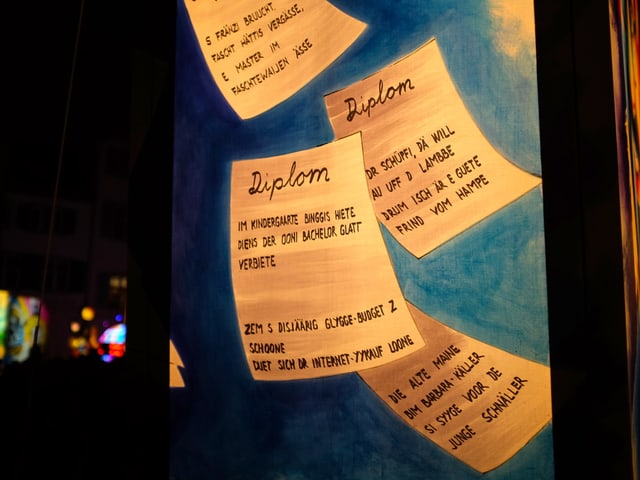 S FRÄNZI BRUUCHT,
FASCHT HÄTTIS VERGÄSSE,
E MASTER IM
FASCHTEWAIJEN ÄSSE
Diplom
DR SCHÜPFI, DÄ WILL
AU UFF D LAMBBE
DRUM ISCH ÄR E GUETE
FRIND VOM HAMPE
Diplom
IM KINDERGAARTE BINGGIS WETE
DIENS DER OONI BACHELOR GLATT
VERBIETE
ZEM S DISJÄÄRIG GLYGGE-BUDGET Z
SCHOONE
DUET SICH DR INTERNET-YYKAUF LOONE
DIE ALTE MAINE
BIM BARBARA-KÄLLER
SI SYYGE VOOR DE
JUNGE SCHNÄLLER